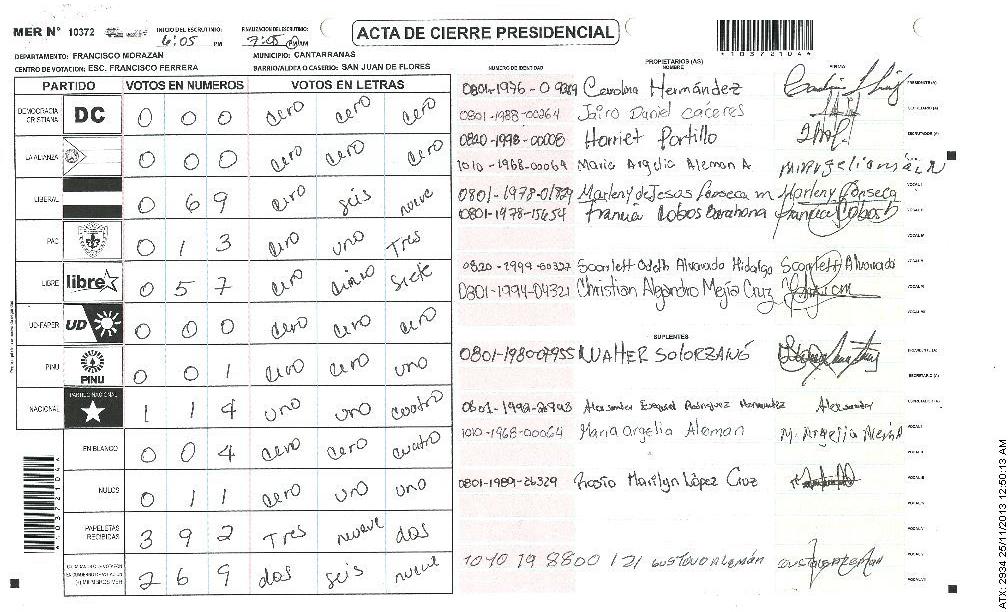 MER N° 10372
INICIO DEL ESCRUTINIO: 6:05 PM
FINALIZACION DEL ESCRUTINIO: 7:05 PM
ACTA DE CIERRE PRESIDENCIAL
10372104
DEPARTAMENTO: FRANCISCO MORAZAN MUNICIPIO: CANTARRANAS
CENTRO DE VOTACION: ESC. FRANCISCO FERRERA BARRIO/ALDEA O CASERIO: SAN JUAN DE FLORES
PARTIDO VOTOS EN NUMEROS VOTOS EN LETRAS
DEMOCRACIA CRISTIANA DC 0 0 0 cero cero cero
LA ALIANZA 0 0 0 cero cero cero
LIBERAL 0 6 9 cero seis nueve
PAC 0 1 3 cero uno Tres
LIBRE libre 0 5 7 cero cinco Siete
UD-FAPER UD 0 0 0 cero cero cero
PINU PINU 0 0 1 cero cero uno
NACIONAL PARTIDO NACIONAL 1 1 4 uno uno cuatro
EN BLANCO 0 0 4 cero cero cuatro
NULOS 0 1 1 cero uno uno
PAPELETAS RECIBIDAS 3 9 2 Tres nueve dos
2 6 9 dos seis nueve
NUMERO DE IDENTIDAD PROPIETARIOS (AS) NOMBRE FIRMA
Carolina Hernández
0801-1988-00264 Jairo Daniel caceres
0820-1998-00008 Harriet Portillo
1010-1968-00069 Maria Argelia Aleman A
Marleny de Jesas fonseca m. Marleny Fonseca
0801-1978-15654 francia Lobos Barahona
0820-1999-00327 Scarlett Odeth Alvarado Hidalgo Scarlett Alvarado
0801-1994-04321 Christian Alejandro Mejía Cruz
SUPLENTES
0801-198007955 WALTER SOLORZANO
0801-1992-26793 Alexsander Exequiel Rodriguez Hernandez Alexsander
1010-1968-00064 Maria argelia Aleman M. Argelia Alemán
0801-1989-26329 Rocio Marilyn López Cruz
1010 19 8800 121 GUSTAVO ALEMÁN
10372104
ATX: 2934 25/11/2013 12:50:13 AM